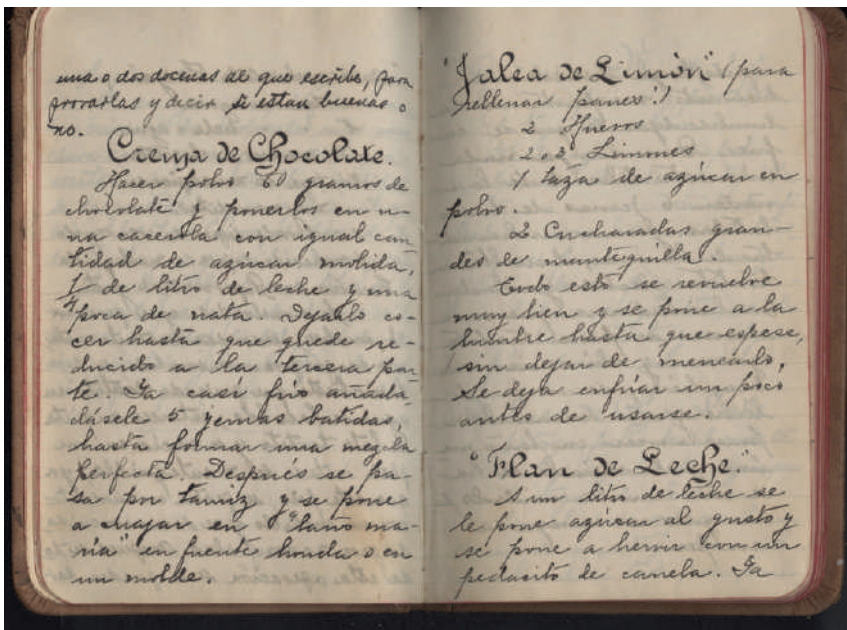 una o dos docenas al que escribe, para
provarlas y decir si estan buenas o
no.
Crema de Chocolate.
Hacer polvo 60 gramos de
chocolate y ponerlos en u-
na cacerola con igual can
tidad de azúcar molida,
1/4 de litro de leche y una
poca de nata. Dejarlo co-
cer hasta que quede re-
ducido a la tercera par
te. Ya casi frio añada
dásele 5 yemas batidas,
hasta formar una mezcla
perfecta. Después se pa-
sa por tamiz y se pone
a cuajar en "baño ma-
ría" en fuente honda o en
un molde.
"Jalea de Limón" (para
rellenar panes!)
2 Huevos
2 o 3 Limones
1 taza de azúcar en
polvo.
2 Cucharadas gran-
des de mantequilla.
Todo esto se revuelve
muy bien y se pone a la
lumbre hasta que espese,
sin dejar de menearlo,
Se deja enfriar un poco
antes de usarse.
"Flan de Leche."
A un litro de leche se
le pone azúcar al gusto y
se pone a hervir con un
pedasito de canela. Ya